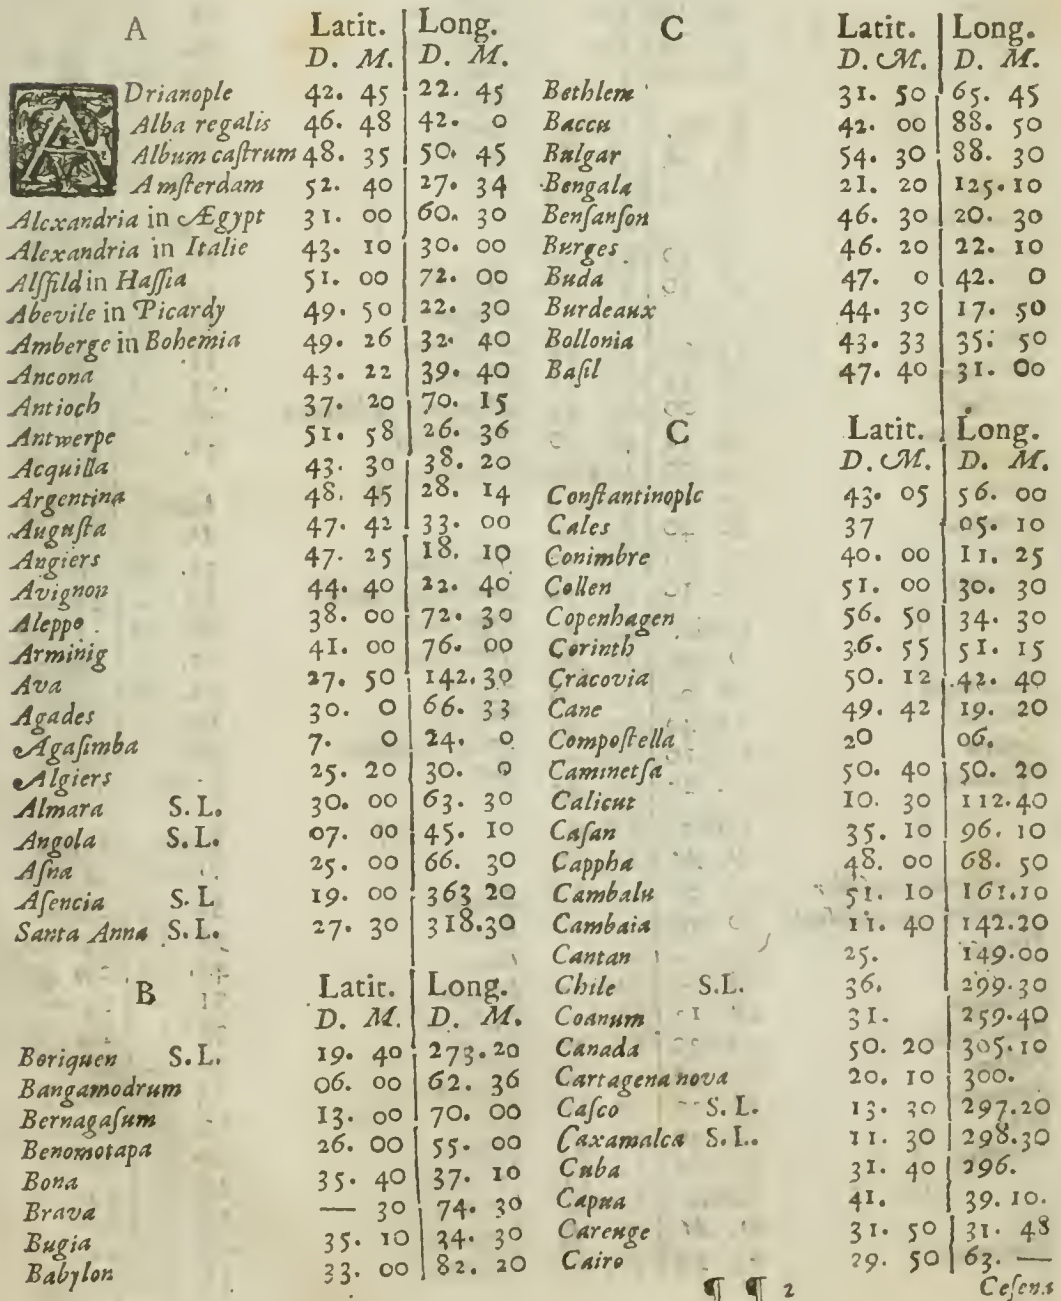 A Latit. Long.
D. M. D. M.
ADrianople 42. 45 22. 45
Alba regalis 46. 48 42. 0
Album caſtrum 48. 35 50. 45
Amſterdam 52. 40 27. 34
Alexandria in Ægypt 31. 00 60. 30
Alexandria in Italie 43. 10 30. 00
Alſfild in Haſſia 51. 00 72. 00
Abevile in Picardy 49. 50 22. 30
Amberge in Bohemia 49. 26 32. 40
Ancona 43. 22 39. 40
Antioch 37. 20 70. 15
Antwerpe 51. 58 26. 36
Acquilla 43. 30 38. 20
Argentina 48. 45 28. 14
Auguſta 47. 42 33. 00
Angiers 47. 25 18. 10
Avignon 44. 40 22. 40
Aleppo 38. 00 72. 30
Arminig 41. 00 76. 00
Ava 27. 50 142. 30
Agades 30. 0 66. 33
Agaſimba 7. 0 24. 0
Algiers 25. 20 30. 0
Almara S. L. 30. 00 63. 30
Angola S. L. 07. 00 45. 10
Aſna 25. 00 66. 30
Aſencia S. L 19. 00 363 20
Santa Anna S. L. 27. 30 318. 30
B Latit. Long.
D. M. D. M.
Boriquen S. L. 19. 40 273. 20
Bangamodrum 06. 00 62. 36
Bernagaſum 13. 00 70. 00
Benomotapa 26. 00 55. 00
Bona 35. 40 37. 10
Brava — 30 74. 30
Bugia 35. 10 34. 30
Babylon 33. 00 82. 20
C Latit. Long.
D. M. D. M.
Bethlem 31. 50 65. 45
Baccu 42. 00 88. 50
Bulgar 54. 30 88. 30
Bengala 21. 20 125. 10
Benſanſon 46. 30 20. 30
Burges 46. 20 22. 10
Buda 47. 0 42. 0
Burdeaux 44. 30 17. 50
Bollonia 43. 33 35: 50
Baſil 47. 40 31. 00
C Latit. Long.
D. M. D. M.
Conſtantinople 43. 05 56. 00
Cales 37 05. 10
Conimbre 40. 00 11. 25
Collen 51. 00 30. 30
Copenhagen 56. 50 34. 30
Corinth 36. 55 51. 15
Cracovia 50. 12 42. 40
Cane 49. 42 19. 20
Compoſtella 20 06.
Caminetſa 50. 40 50. 20
Calicut 10. 30 112. 40
Caſan 35. 10 96. 10
Cappha 48. 00 68. 50
Cambalu 51. 10 161. 10
Cambaia 11. 40 142. 20
Cantan 25. 149. 00
Chile S. L. 36. 299. 30
Coanum 31. 259. 40
Canada 50. 20 305. 10
Cartagena nova 20. 10 300.
Caſco S. L. 13. 30 297. 20
Caxamalca S. L. 11. 30 298. 30
Cuba 31. 40 296.
Capua 41. 39. 10.
Carenge 31. 50 31. 48
Cairo 29. 50 63. —
¶ ¶ 2 Ceſena